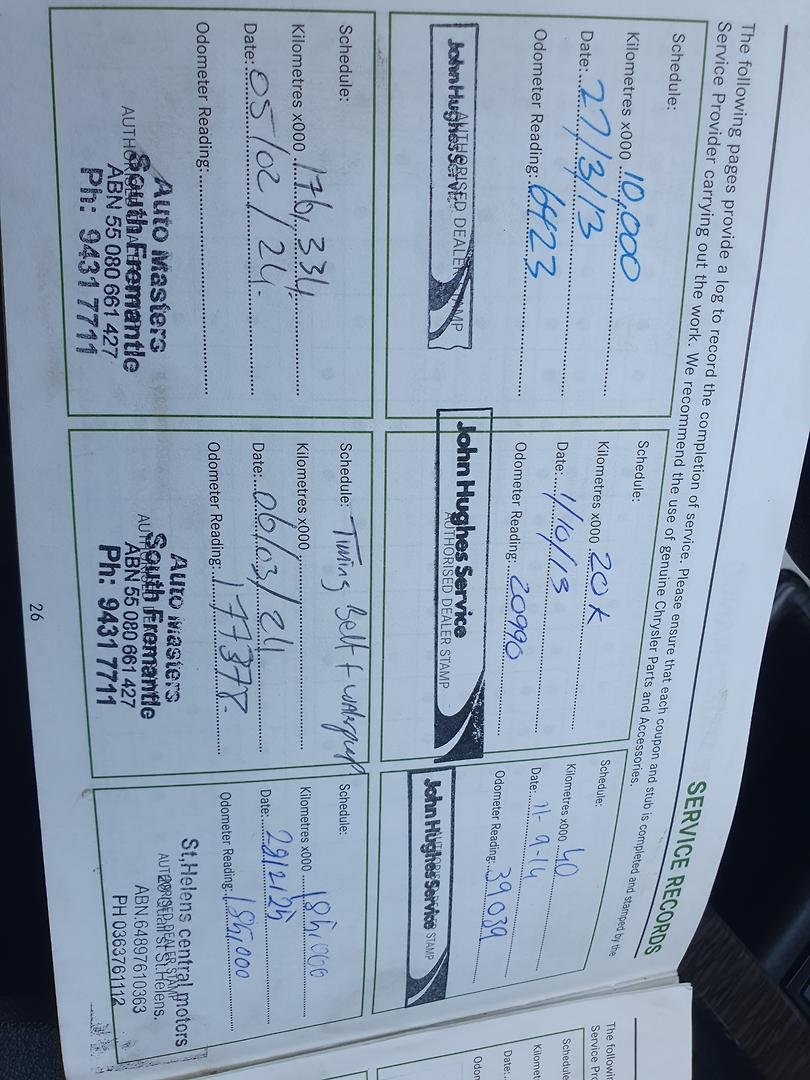 SERVICE RECORDS
The following pages provide a log to record the completion of service. Please ensure that each coupon and stub is completed and stamped by the
Service Provider carrying out the work. We recommend the use of genuine Chrysler Parts and Accessories.
Schedule:
Kilometres x000 10,000
Date: 27/3/13
Odometer Reading: 6423
AUTHORISED DEALER STAMP
John Hughes Service
Schedule:
Kilometres x000 20K
Date: 1/10/13
Odometer Reading: 20990
John Hughes Service
AUTHORISED DEALER STAMP
Schedule:
Kilometres x000 40
Date: 11-9-14
Odometer Reading: 39039
STAMP
John Hughes Service
Schedule:
Kilometres x000 176,334
Date: 05/02/24
Odometer Reading:
Auto Masters
South Fremantle
ABN 55 080 661 427
Ph: 9431 7711
Schedule: Timing Belt + waterpump
Kilometres x000
Date: 06/03/24
Odometer Reading: 177378
Auto Masters
South Fremantle
ABN 55 080 661 427
Ph: 9431 7711
Schedule:
Kilometres x000 185,000
Date: 28/2/25
Odometer Reading: 185,000
St,Helens central motors
AUTHORISED DEALER STAMP
St.Helens.
ABN.64897610363
PH 0363761112
26
The followin
Service Pro
Schedule
Kilomet
Date:
Odom